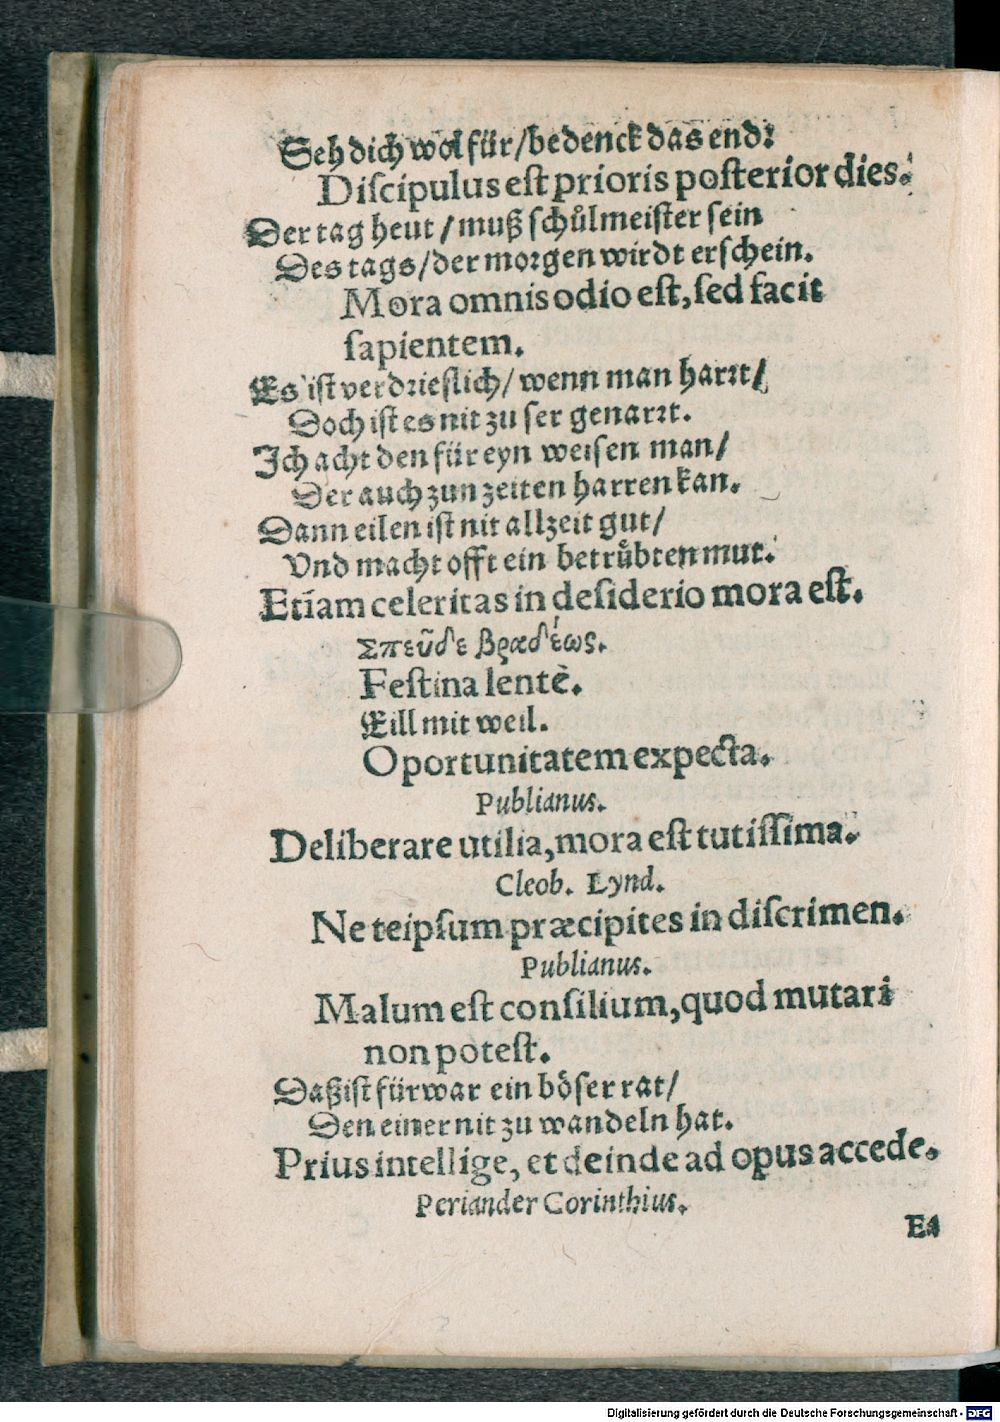 Seh dich wol für/bedenck das end:
Diſcipulus eſt prioris poſterior dies.
Der tag heut/muß ſchůlmeiſter ſein
Des tags/der moꝛgen wirdt erſchein.
Mora omnis odio eſt, ſed facit
ſapientem.
Es iſt verdꝛieſlich/wenn man harꝛt/
Doch iſt es nit zu ſer genarꝛt.
Ich acht den für eyn weiſen man/
Der auch zun zeiten harren kan.
Dann eilen iſt nit allzeit gut/
Vnd macht offt ein betrůbten mut.
Etiam celeritas in deſiderio mora eſt.
Σπεῦδε βραδέως.
Feſtina lentè.
Eill mit weil.
Oportunitatem expecta.
Publianus.
Deliberare utilia, mora eſt tutiſſima.
Cleob. Lynd.
Ne teipſum præcipites in diſcrimen.
Publianus.
Malum eſt conſilium, quod mutari
non poteſt.
Daß iſt fürwar ein böſer rat/
Den einer nit zu wandeln hat.
Prius intellige, et deinde ad opus accede.
Periander Corinthius.
E4
Digitalisierung gefördert durch die Deutsche Forschungsgemeinschaft - DFG